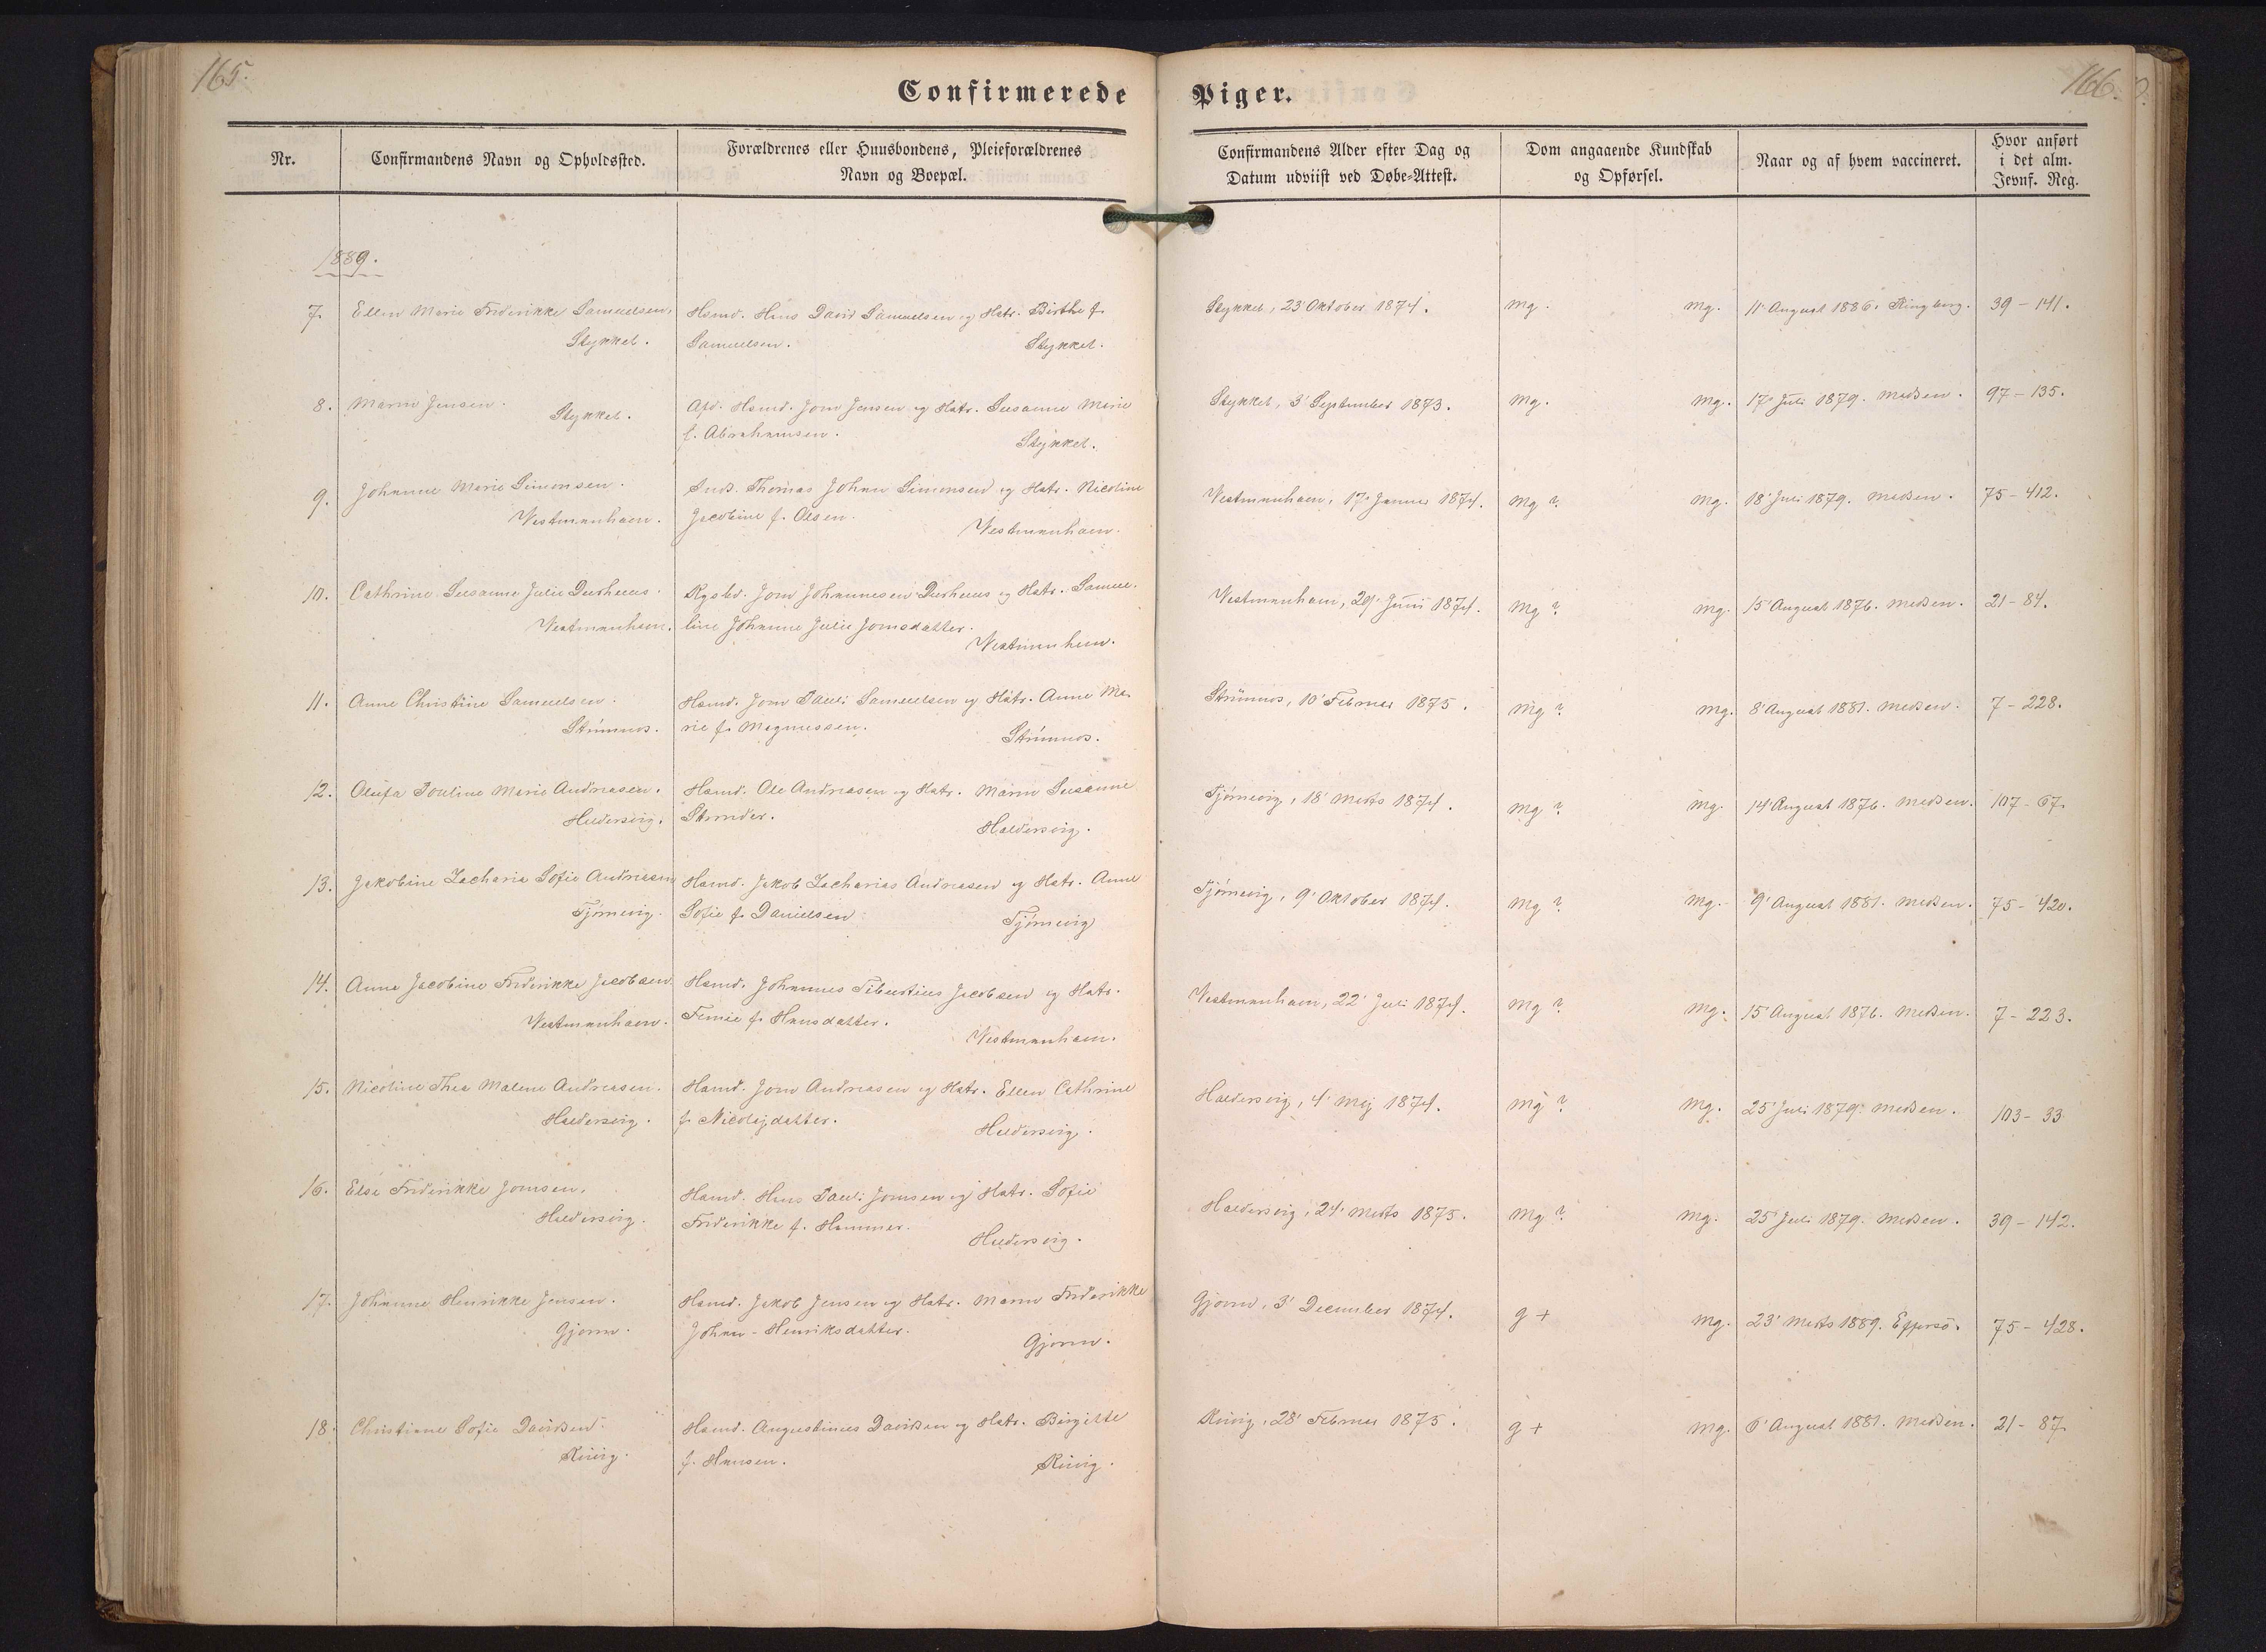 165.
166.
Confirmerede Piger.
Nr.
Confirmandens Navn og Opholdssted.
Forældrenes eller Huusbondens, Pleieforældrenes
Navn og Boepæl.
Confirmandens Alder efter Dag og
Datum udviist ved Døbe-Attest.
Dom angaaende Kundskab
og Opførsel.
Naar og af hvem vaccineret.
Hvor anført
i det alm.
Jevnf. Reg.
1889.
7. Ellen Marie Frederikke Samuelsen, Hamd. Hans David Samuelsen og Hstr. Birthe f. Stykket, 23' Oktober 1874. mg. mg. 11' August 1886. Ringberg. 39 - 141.
Stykket. Samuelsen. Stykket.
8. Maren Jensen. Afd. Hamd. Jom Jensen og Hstr. Susanne Marie Stykket, 3' September 1873. mg. mg. 17' Juli 1879. Madsen. 97 - 135.
Stykket. f. Abrahamsen. Stykket.
9. Johanne Marie Simonsen. Thomas Johan Simonsen og Hstr. Nicoline Westmanhavn, 17' Januar 1874. mg ? mg. 18' Juli 1879. Madsen. 75 - 412.
Westmanhavn. Jacobine f. Olsen. Westmanhavn.
10. Cathrine Susanne Julie Durhuus. Kgsbd. Jom Johannesen Durhuus og Hstr. Samue- Westmanhavn, 29' Juni 1874. mg ? mg. 15' August 1876. Madsen. 21 - 84.
Westmanhavn. line Johanne Julie Jomsdatter. Westmanhavn.
11. Anne Christine Samuelsen. Hamd. Jom Pauli Samuelsen og Hstr. Anne Ma- Strømnes, 10' Februar 1875. mg ? mg. 8' August 1881. Madsen. 7 - 228.
Strømnes. rie f. Magnussen. Strømnes.
12. Olufa Pouline Marie Andreasen. Hamd. Ole Andreasen og Hstr. Maren Susanne Tjørnevig, 18' Marts 1874. mg ? mg. 14' August 1876. Madsen. 107 - 67.
Haldersvig. Strender. Haldersvig.
13. Jakobine Zacharia Sofie Andreasen Hamd. Jakob Zacharias Andreasen og Hstr. Anne Tjørnevig, 9' Oktober 1874. mg ? mg. 9' August 1881. Madsen. 75 - 420.
Tjørnevig. Sofie f. Danielsen Tjørnevig
14. Anna Jacobine Frederikke Jacobsen Hamd. Johannes Tiburtius Jacobsen og Hstr. Westmanhavn, 22' Juli 1874. mg ? mg. 15' August 1876. Madsen. 7 - 223.
Westmanhavn. Femie f. Hansdatter. Westmanhavn.
15. Nicoline Thea Malene Andreasen. Hamd. Jom Andreasen og Hstr. Ellen Cathrine Haldersvig, 4' Maj 1874. mg ? mg. 25' Juli 1879. Madsen. 103 - 33
Haldersvig. f. Nicolajdatter. Haldersvig.
16. Else Frederikke Jomsen. Hamd. Hans Pauli Jomsen og Hstr. Sofie Haldersvig, 24' Marts 1875. mg ? mg. 25' Juli 1879. Madsen. 39 - 142.
Haldersvig. Frederikke f. Hammer. Haldersvig.
17. Johanne Henrikke Jensen. Hamd. Jakob Jensen og Hstr. Maren Frederikke Gjonn, 3' December 1874. g + mg. 23' Marts 1889. Effersø. 75 - 428.
Gjonn. Johan-Henriksdatter. Gjonn.
18. Christiane Sofie Davidsen. Hamd. Augustinus Davidsen og Hstr. Birgitte Kvivig, 28' Februar 1875. g + mg. 6' August 1881. Madsen. 21 - 87.
Kvivig. f. Hansen. Kvivig.